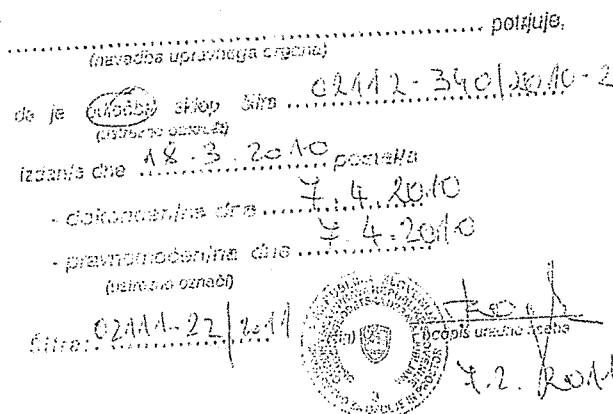 ........................................................ potrjuje,
(navedba upravnega organa)
da je odločba sklep šifra 02112-340/2010-2
(ustrezno označi)
izdan/a dne 18.3.2010 postal/a
- dokončen/na dne 7.4.2010
- pravnomočen/na dne 7.4.2010
(ustrezno označi)
Šifra: 02111-22/2011
podpis uradne osebe
7.2.2011